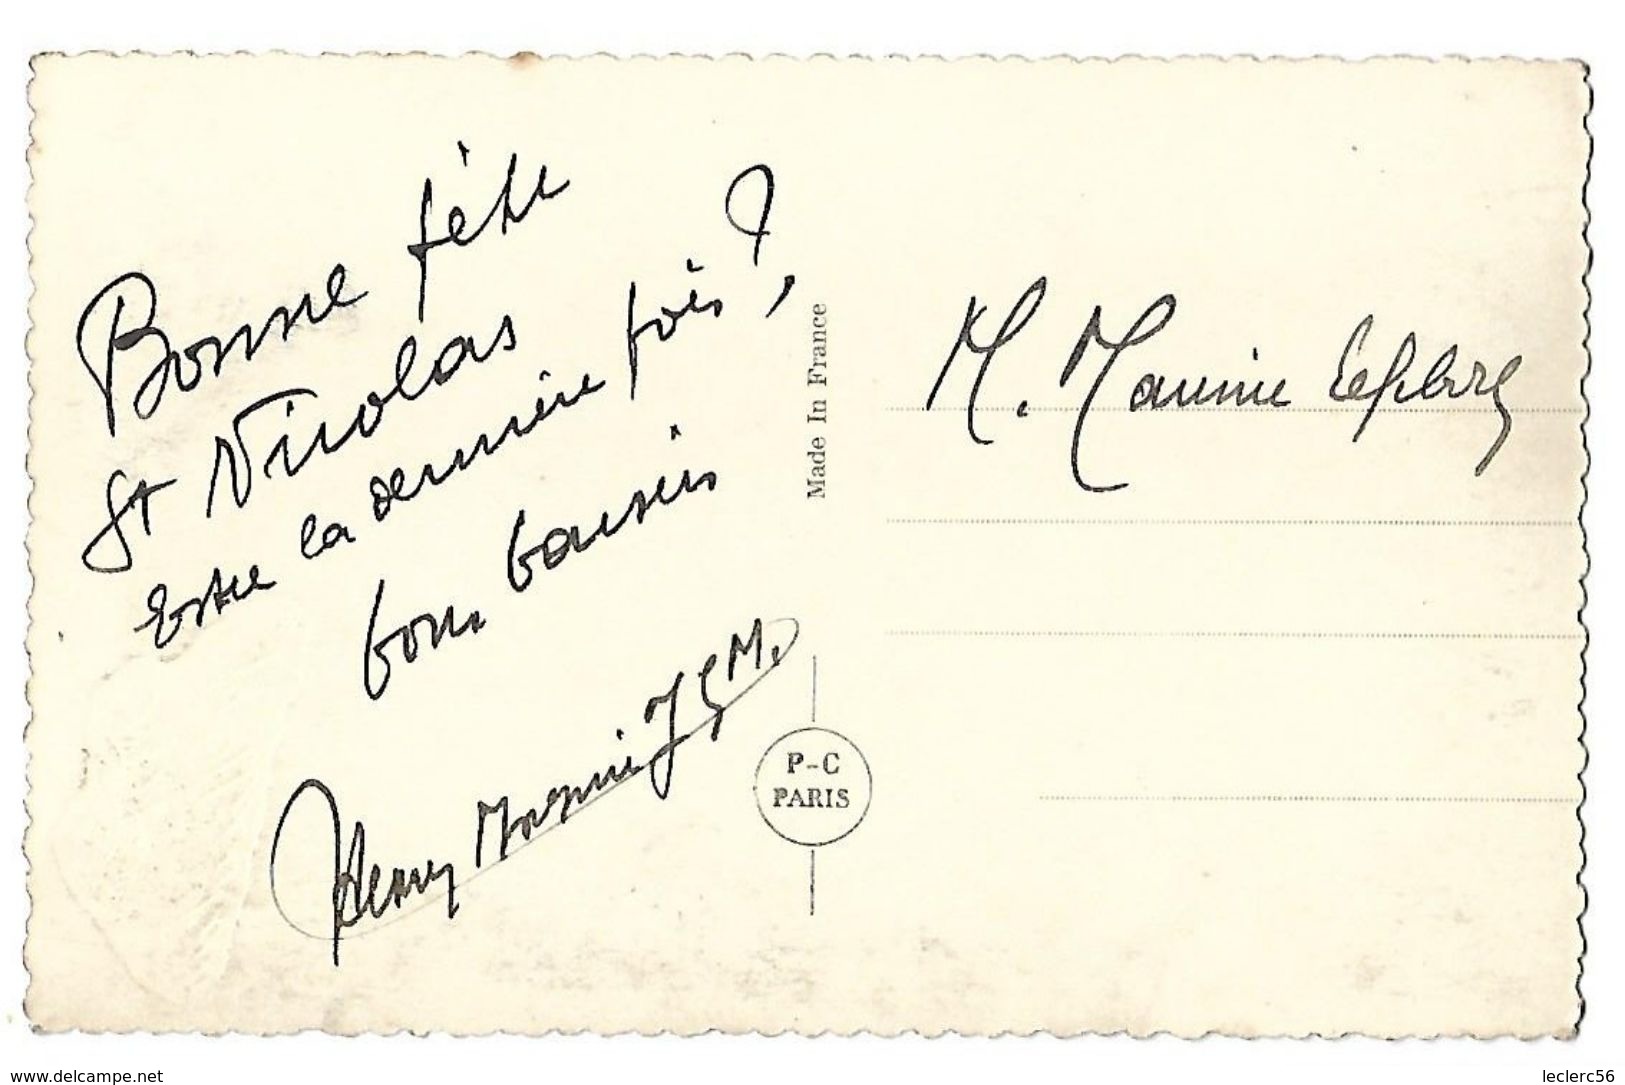 Bonne fête
St Nicolas
Est ce la dernière fois ?,
bons baisers
Henry
Made In France
P-C
PARIS
M. Maurice Lefebvre
www.delcampe.net
leclerc56